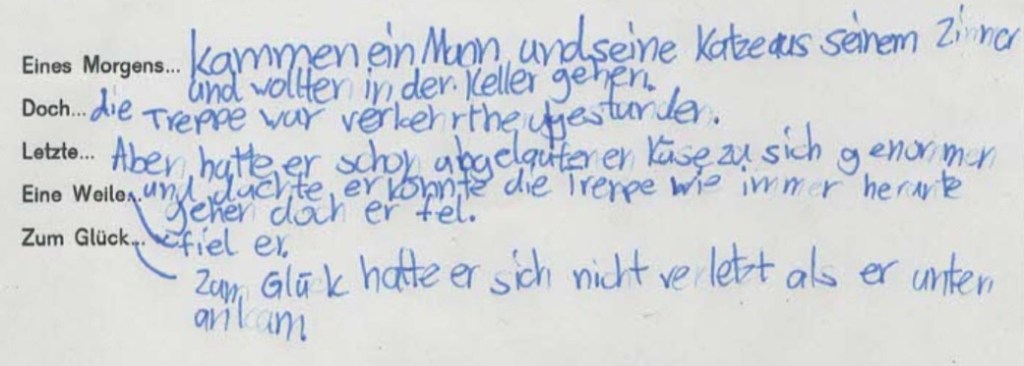 Eines Morgens... kammen ein Mann und seine Katze aus seinem Zimmer
und wollten in der Keller gehen.
Doch... die Treppe war verkehrt
Letzte... Aber hatte er schon abgelaufenen Käse zu sich genormen
Eine Weile... und dachte er könnte die Treppe wie immer herunte
gehen doch er fel.
Zum Glück... fiel er.
Zum Glück hatte er sich nicht verletzt als er unten
ankam